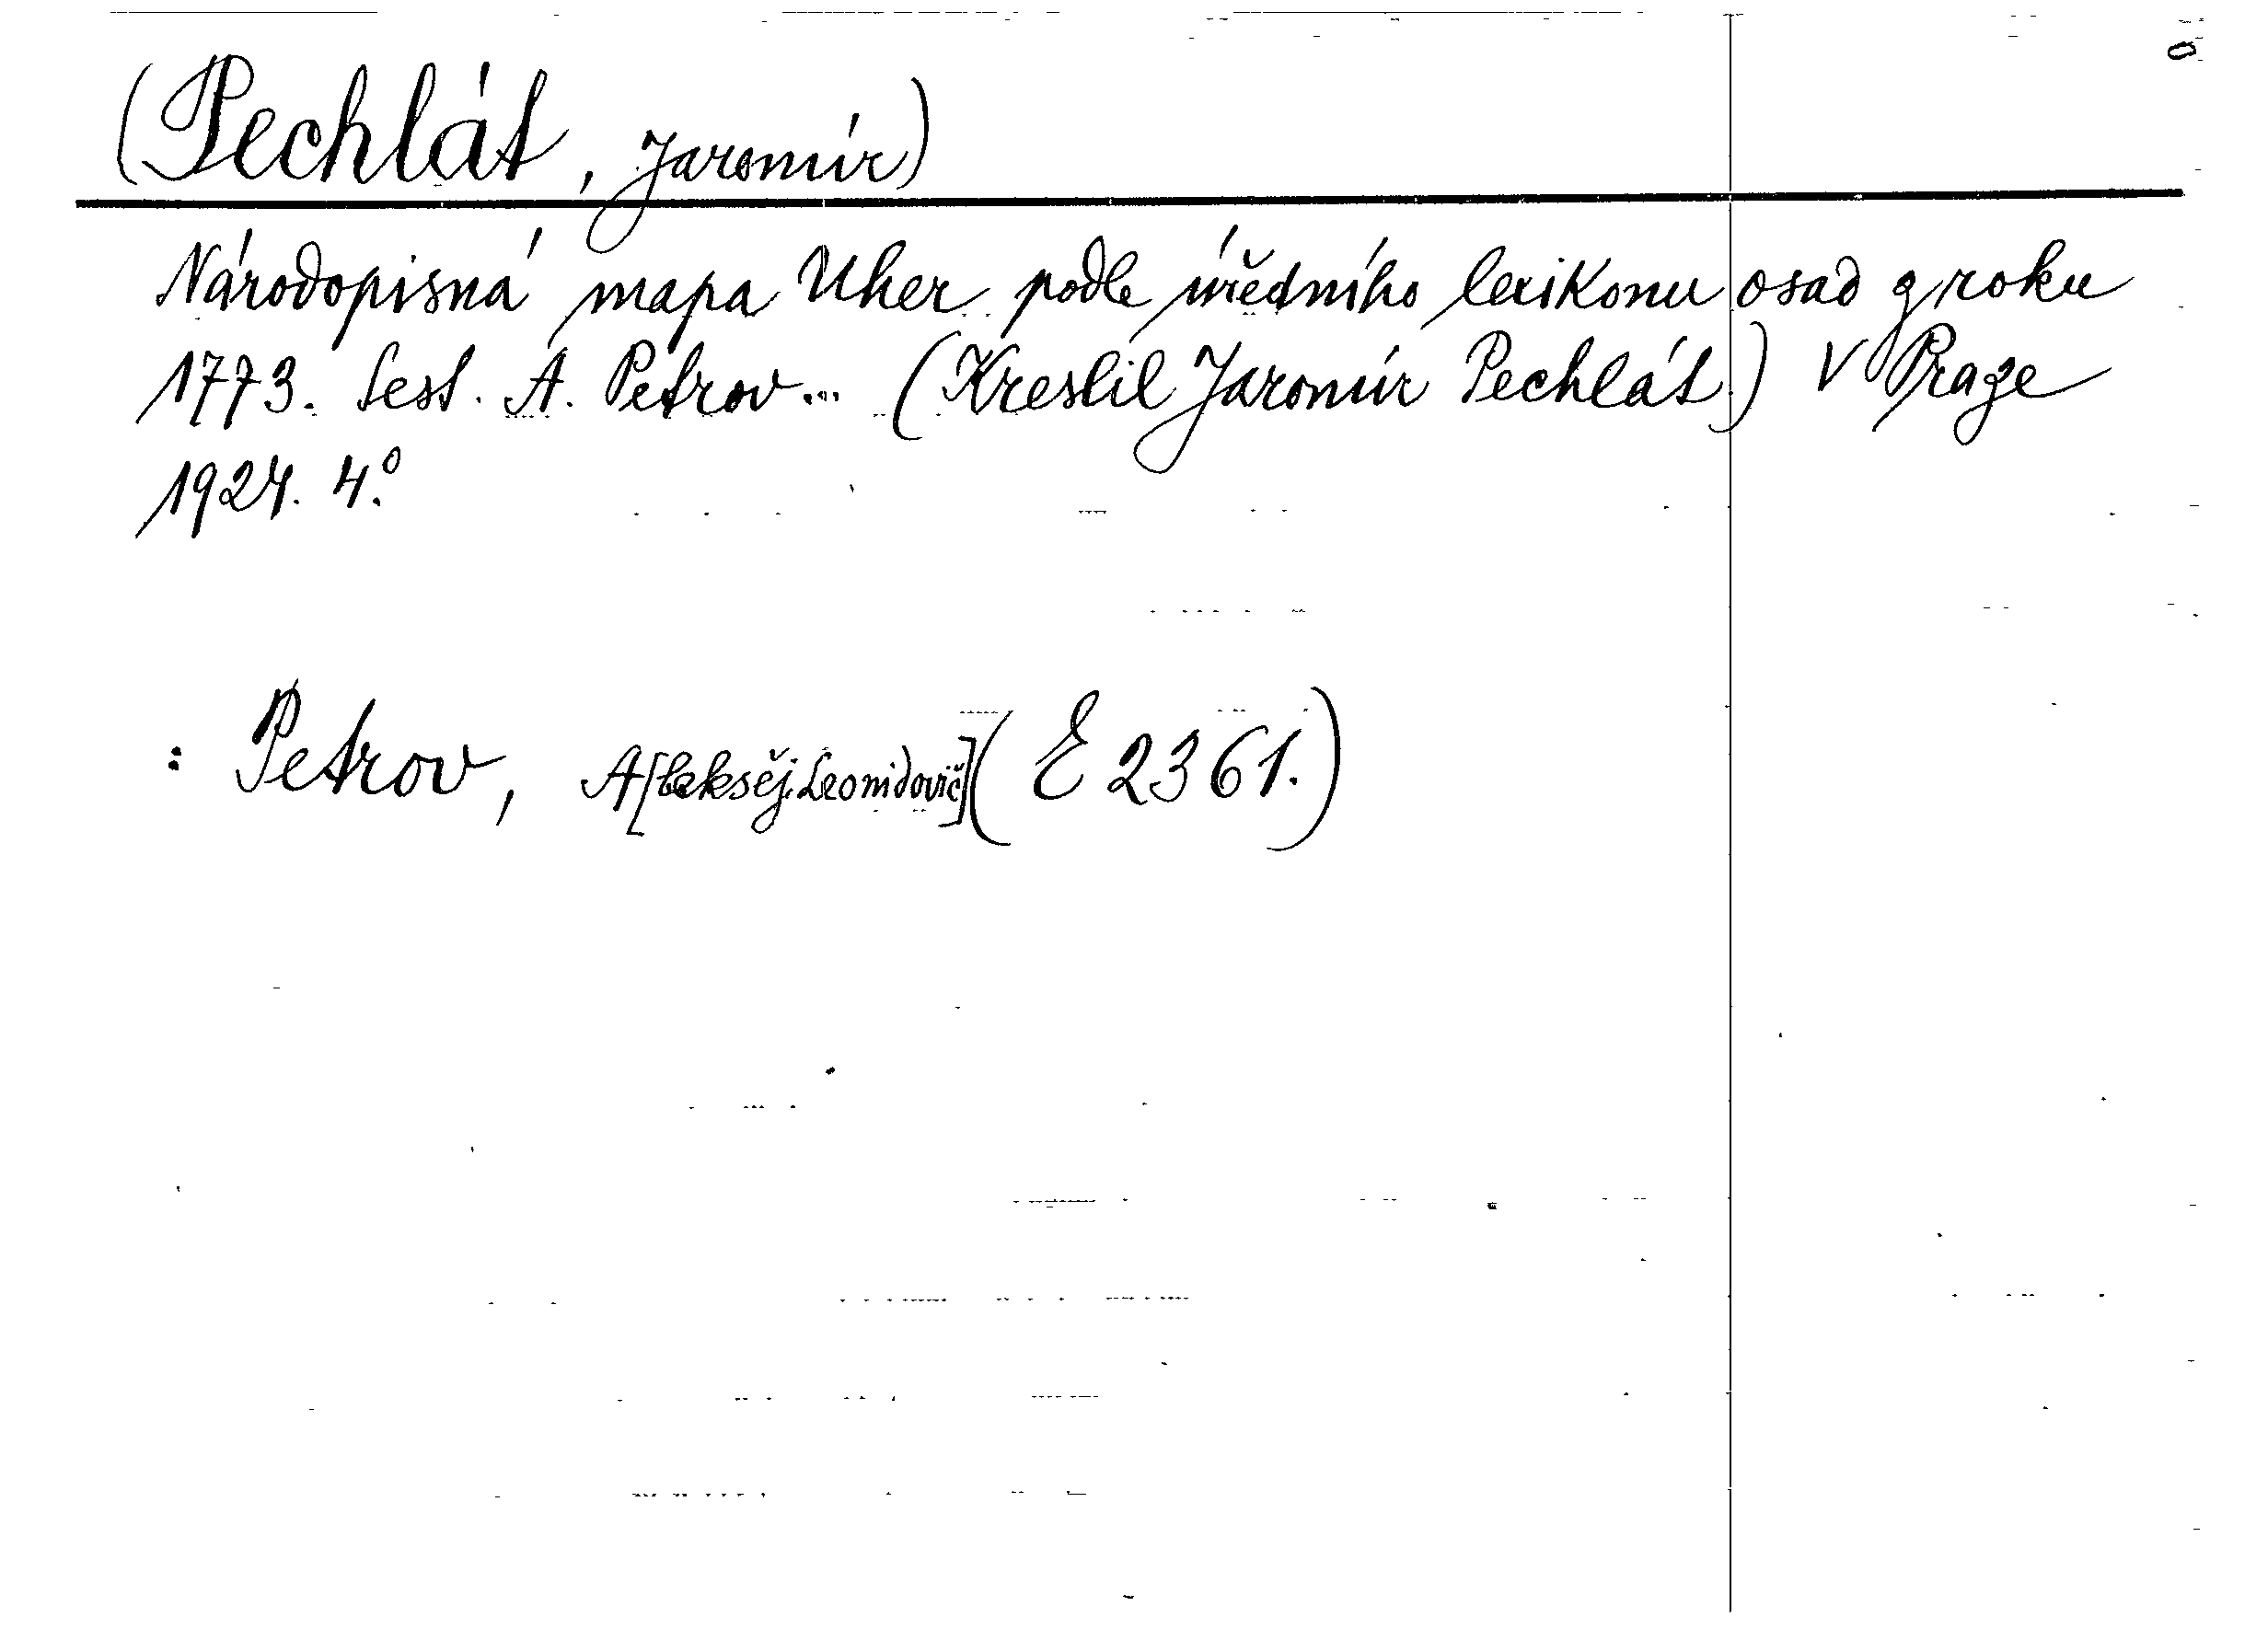 (Pechlát, Jaromír)
Národopisná mapa Uher podle úředního lexikonu osad z roku
1773. Sest. A. Petrov... (Kreslil Jaromír Pechlát.) V Praze
1924. 4.°
: Petrov, A[leksěj Leonidovič] (E 2361.)